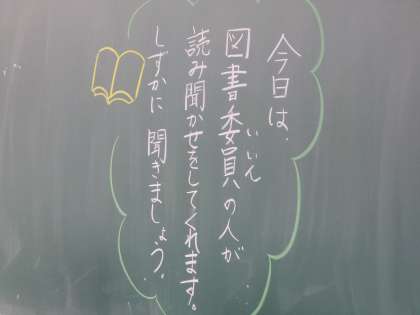 今日は、
図書委員の人が
いいん
読み聞かせをしてくれます。
しずかに聞きましょう。